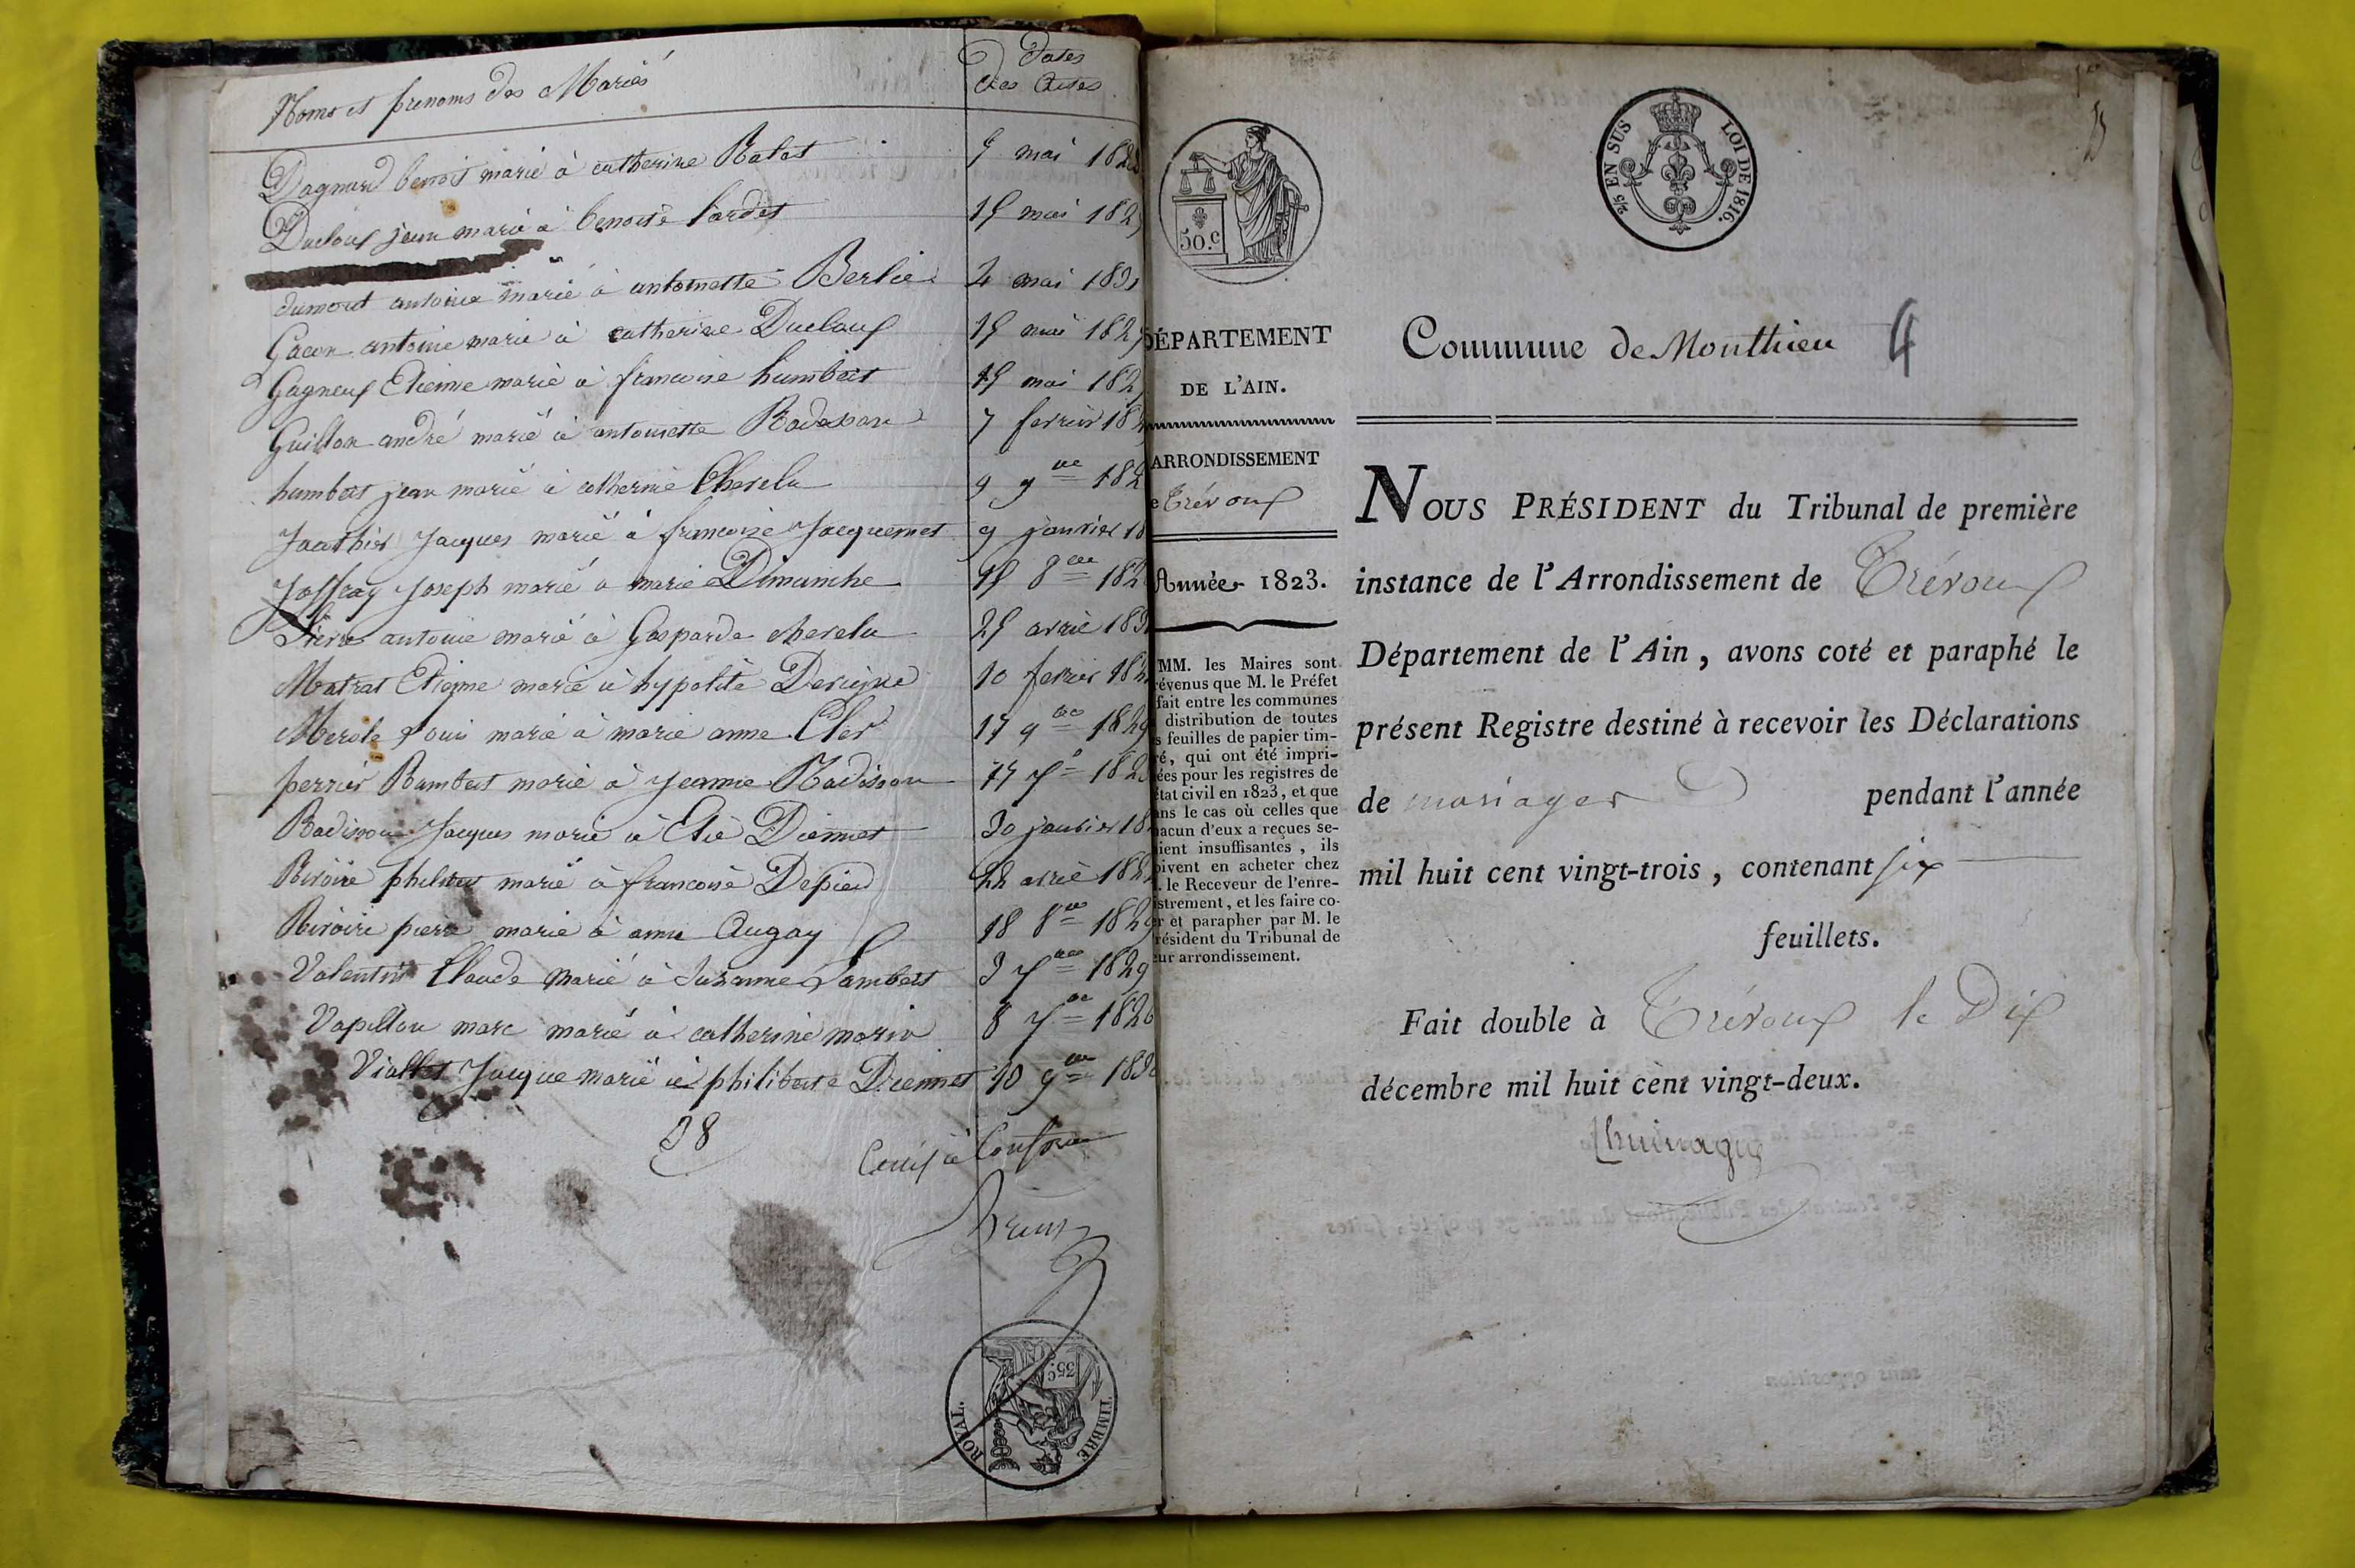 Noms et prenoms des Mariés
Dates
des Actes
Dagnard benoit marié à catherine Balat
5 mai 182
Duclous jean marié à benoite
15 mai 182
dumont antoine marié à antoinette Berlie
4 mai 183
Gacon antoine marié à catherine Duclous
15 mai 182
Gagneux Etienne marié à francoise humbert
15 mai 182
Guillon andré marié à antoinette
7 fevrier 18
humbert jean marié à catherine Chevelu
9 9bre 182
Jacques marié à francoise Jacquemet
9 janvier 18
Joffray Joseph marié a marie Dimanche
15 8bre 182
antoine marié à Gasparde chevelu
25 avril 183
Matrat Etienne marié à hypolite
10 fevrier 182
Merole Louis marié à marie anne Cler
17 9bre 1829
perrier Rambert marié à Jeanne Radisson
182
Radisson Jacques marié à Diennet
30 janvier 18
Revoire marié à francoise Depied
22 avril 182
Revoire pierre marié à anne Augay
18 8bre 1829
Valentin Claude marié à Suzanne Lambert
3 7bre 1829
Vapillon marc marié à catherine morin
8 7bre 182
Viallet Jacque marié à philiberte Diennet
10 9bre 183
38
Brun
TIMBRE ROYAL.
35 c.
50. c
2/5 EN SUS LOI DE 1816.
DÉPARTEMENT
DE L'AIN.
ARRONDISSEMENT
e Trévoux
Année 1823.
MM. les Maires sont
révenus que M. le Préfet
fait entre les communes
distribution de toutes
s feuilles de papier tim-
ré, qui ont été impri-
ées pour les registres de
état civil en 1823, et que
ans le cas où celles que
hacun d'eux a reçues se-
aient insuffisantes, ils
oivent en acheter chez
. le Receveur de l'enre-
istrement, et les faire co-
er et parapher par M. le
résident du Tribunal de
eur arrondissement.
Commune de Monthieu 4
NOUS PRÉSIDENT du Tribunal de première
instance de l'Arrondissement de Trévoux
Département de l'Ain, avons coté et paraphé le
présent Registre destiné à recevoir les Déclarations
de mariages pendant l'année
mil huit cent vingt-trois, contenant six
feuillets.
Fait double à Trévoux le Dix
décembre mil huit cent vingt-deux.